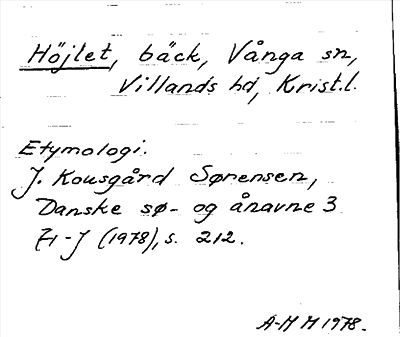 Höjlet, bäck, Vånga sn,
Villands hd, Krist.l.
Etymologi.
J. Kousgård Sørensen,
Danske sø- og ånavne 3
H-J (1978), s. 212.
A-M M 1978.